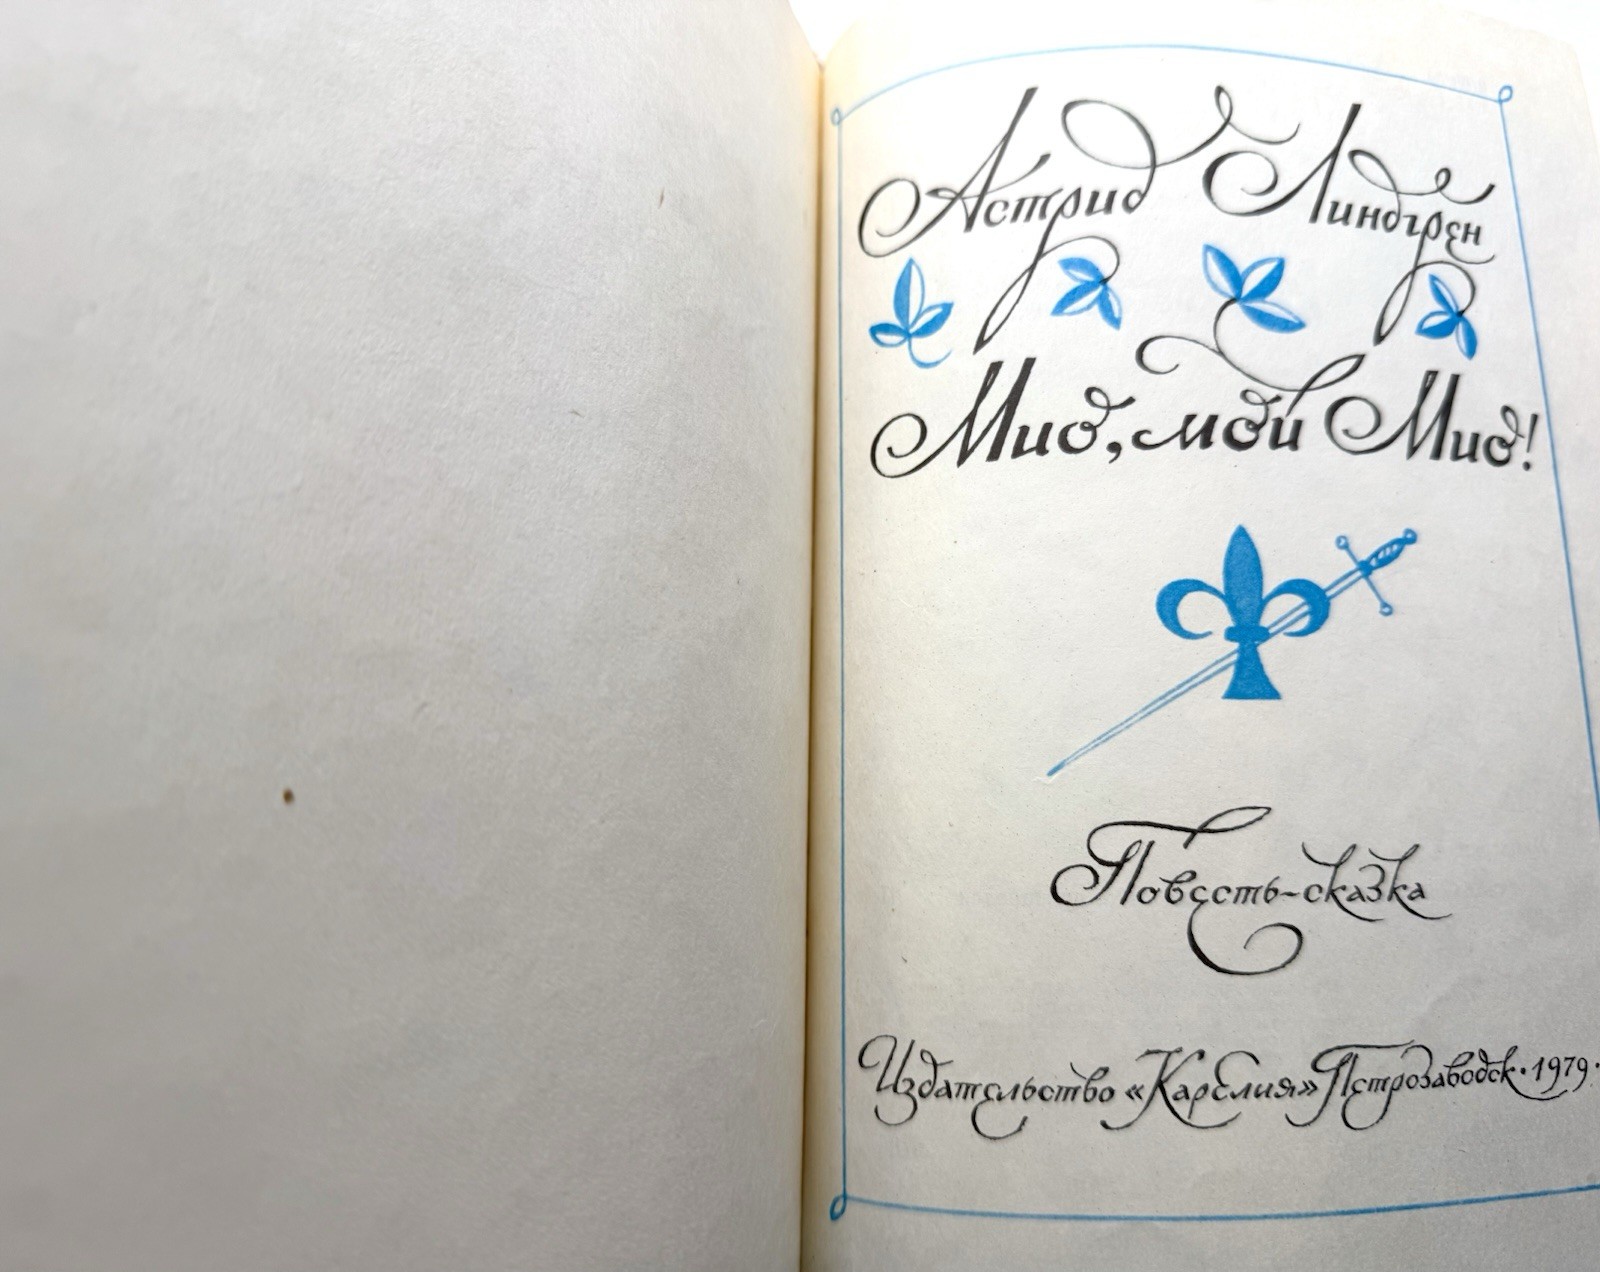 Астрид Линдгрен
Мио, мой Мио!
Повесть-сказка
Издательство «Карелия» Петрозаводск·1979·